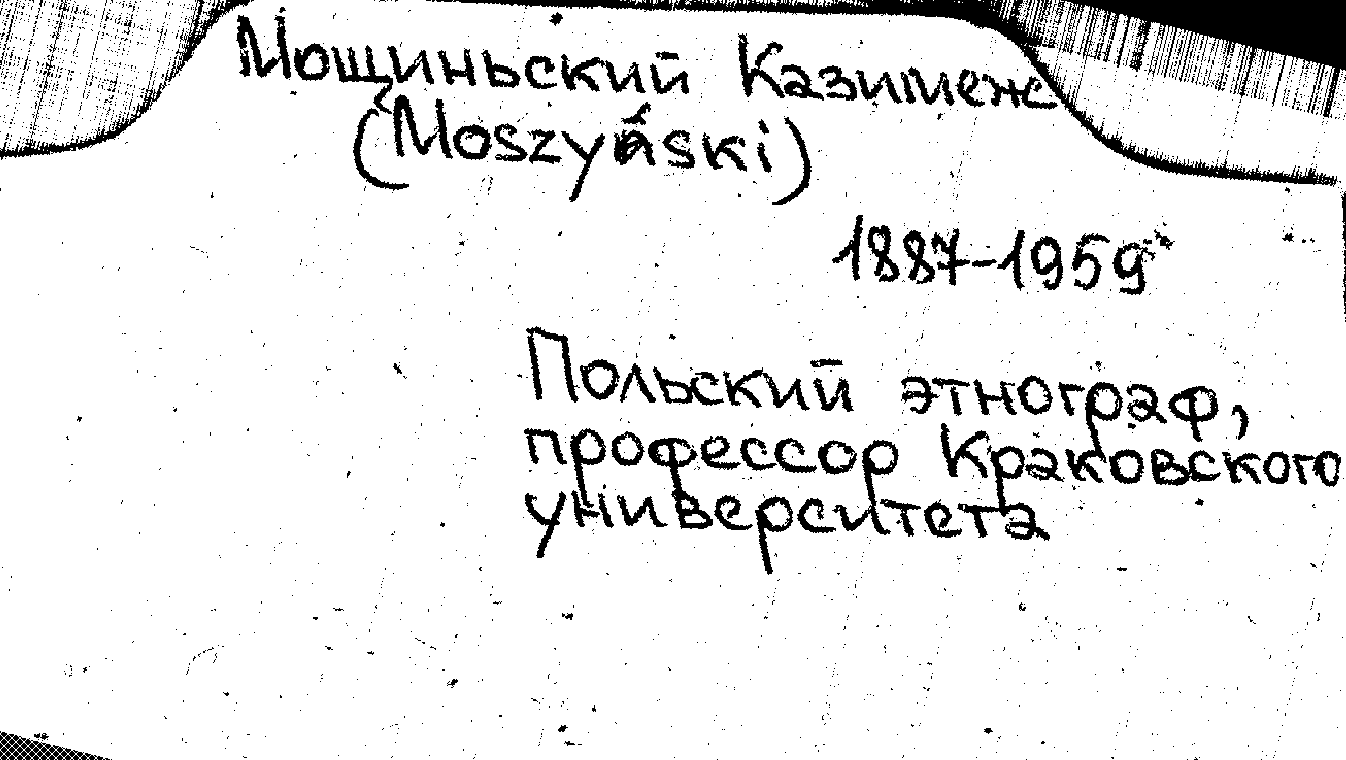 Мощиньский Казимеж
(Moszyński)
1887-1959
Польский этнограф,
профессор Краковского
университета